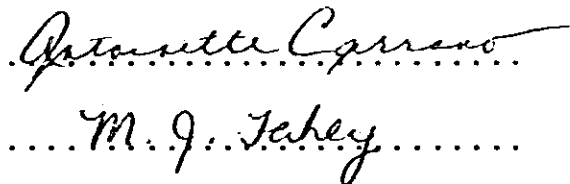 Antoinette Carrano
M. J. Fahey